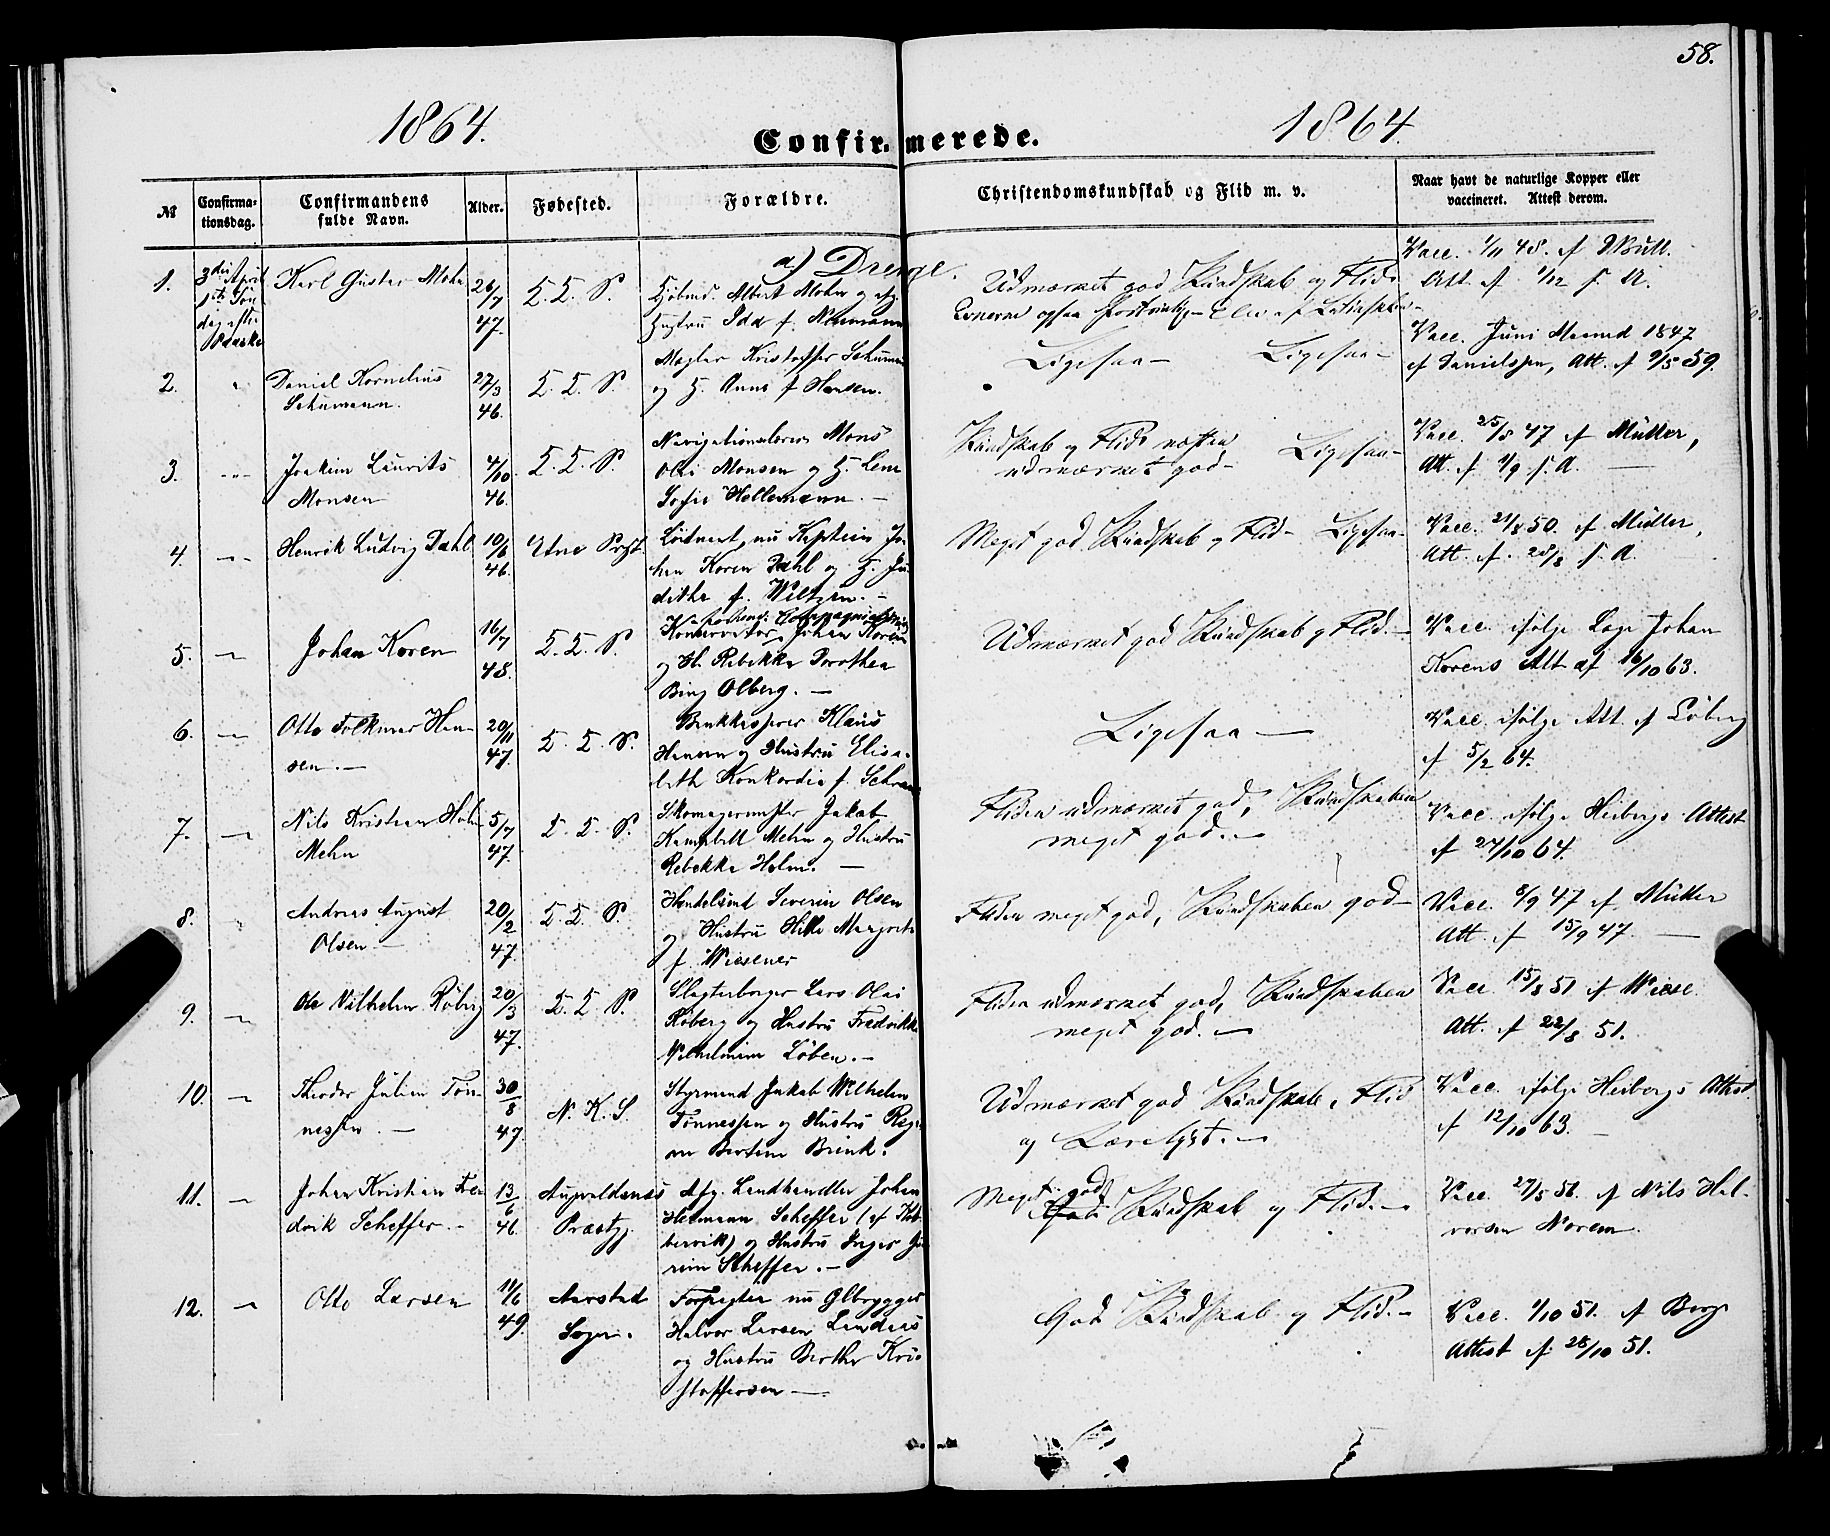 58.
1864. 1864.
Confirmerede.
№ Confirmationsdag. Confirmandens fulde Navn. Alder. Fødested. Forældre. Christendomskundskab og Flid m. v. Naar havt de naturlige Kopper eller vaccineret. Attest derom.
a) Drenge.
1. 3die April 1ste Søndag efter Paaske
Karl Gustav Mohr
47.
D. D. S.
Kjøbmd. Albert Mohr og afg.
Hustru Ida f. Neumann
Udmærket god Kundskab og Flid
Evnerne ogsaa
Vacc. 1/11 48. af Bull.
Att. af 1/12 s. A.
2. "
Daniel Kornelius
Schumann.
27/3
46.
D. D. S.
Mægler Kristoffer Schumann
og H. Anna f. Hansen.
Ligesaa – Ligesaa –
Vacc. Juni Maaned 1847
af Danielssen, Att. af 9/5 59.
3. "
Joakim Laurits
Monsen
4/10
46.
D. D. S.
Navigationslærer Mons
Olai Monsen og H. Lena
Sofie Hellemann. –
Kundskab og Flid næsten
udmærket god – Ligesaa –
Vacc. 25/8 47 af Müller,
Att. af 1/9 s. A. –
4. "
Henrik Ludvig Dahl
10/6
46.
Etne Prgt.
Løitnant, nu Kaptein Jo-
han Koren Dahl og H. Ju-
ditha f. Weltzin. –
Meget god Kundskab og Flid – Ligesaa –
Vacc. 21/8 50. af Müller,
Att. af 28/8 s. A.
5. "
Johan Koren
16/7
48.
D. D. S.
Konservator, Johan Koren
og H. Rebekka Dorothea
Bing Olberg. –
Udmærket god Kundskab og Flid. –
Vacc. ifølge Læge Johan
Korens Att. af 16/10 63.
6. "
Otto Folkmar Han-
sen. –
20/11
47.
D. D. S.
Klaus
Hansen og Hustru Elisa-
beth Konkordia f. Schram
Ligesaa –
Vacc. ifølge Att. af Løberg
af 5/2 64.
7. "
Nils Kristian Holm
Mehn
5/7
47.
D. D. S.
Skomagermester Jakob
Kambell Mehn og Hustru
Rebekka Holm. –
Fliden udmærket god, Kundskaben
meget god. –
Vacc. ifølge Heibergs Attest
af 27/10 64.
8. "
Andreas August
Olsen –
20/2
47.
D. D. S.
Handelsmd Severin Olsen
og Hustru Margrete
f. Wiesener
Fliden meget god, Kundskaben god –
Vacc. 8/9 47 af Müller
Att. af 15/9 47. –
9. "
Ole Vilhelm Røberg
20/3
47.
D. D. S.
Slagterborger Lars Olai
Røberg og Hustru Fredrikke
Vilhelmine Løben. –
Fliden udmærket god, Kundskaben
meget god. –
Vacc. 15/8 51 af Wiese.
Att. af 22/8 51.
10. "
Theodor Julius Tøn-
nessen. –
30/8
47.
N. K. S.
Styrmand Jakob Wilhelm
Tønnessen og Hustru
Bertine Brink.
Udmærket god Kundskab, Flid
og Lærelyst. –
Vacc. ifølge Heibergs Attest
af 12/10 63. –
11. "
Johan Kristian Fre-
drik Scheffer. –
13/6
46.
Præstgj.
Afg. Landhandler Johan
Hermann Scheffer
og Hustru Inger
Scheffer. –
Meget god
Kundskab og Flid. –
Vacc. 27/5 58. af Nils Hal-
vorsen Norem.
12. "
Otto Larsen
11/6
49.
Aarstad
Sogn.
Forpagter nu Ølbrygger
Halvor Larsen Landaas
og Hustru Berthe Kris-
stoffersen –
God Kundskab og Flid. –
Vacc. 1/10 51. af Berg.
Attest af 28/10 51.